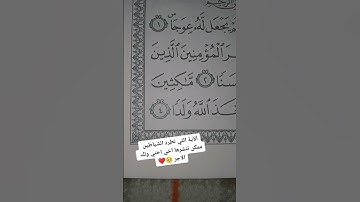 مْ يَجْعَل لَّهُۥ عِوَجَاۜ ١
رَ ٱلْمُؤْمِنِينَ ٱلَّذِينَ
سَنًا ٢ مَّٰكِثِينَ
خَذَ ٱللَّهُ وَلَدًا ٤
الآية التي تطرد الشياطين
ممكن تنشرها أخي اختي ولك
الاجر 😢❤️